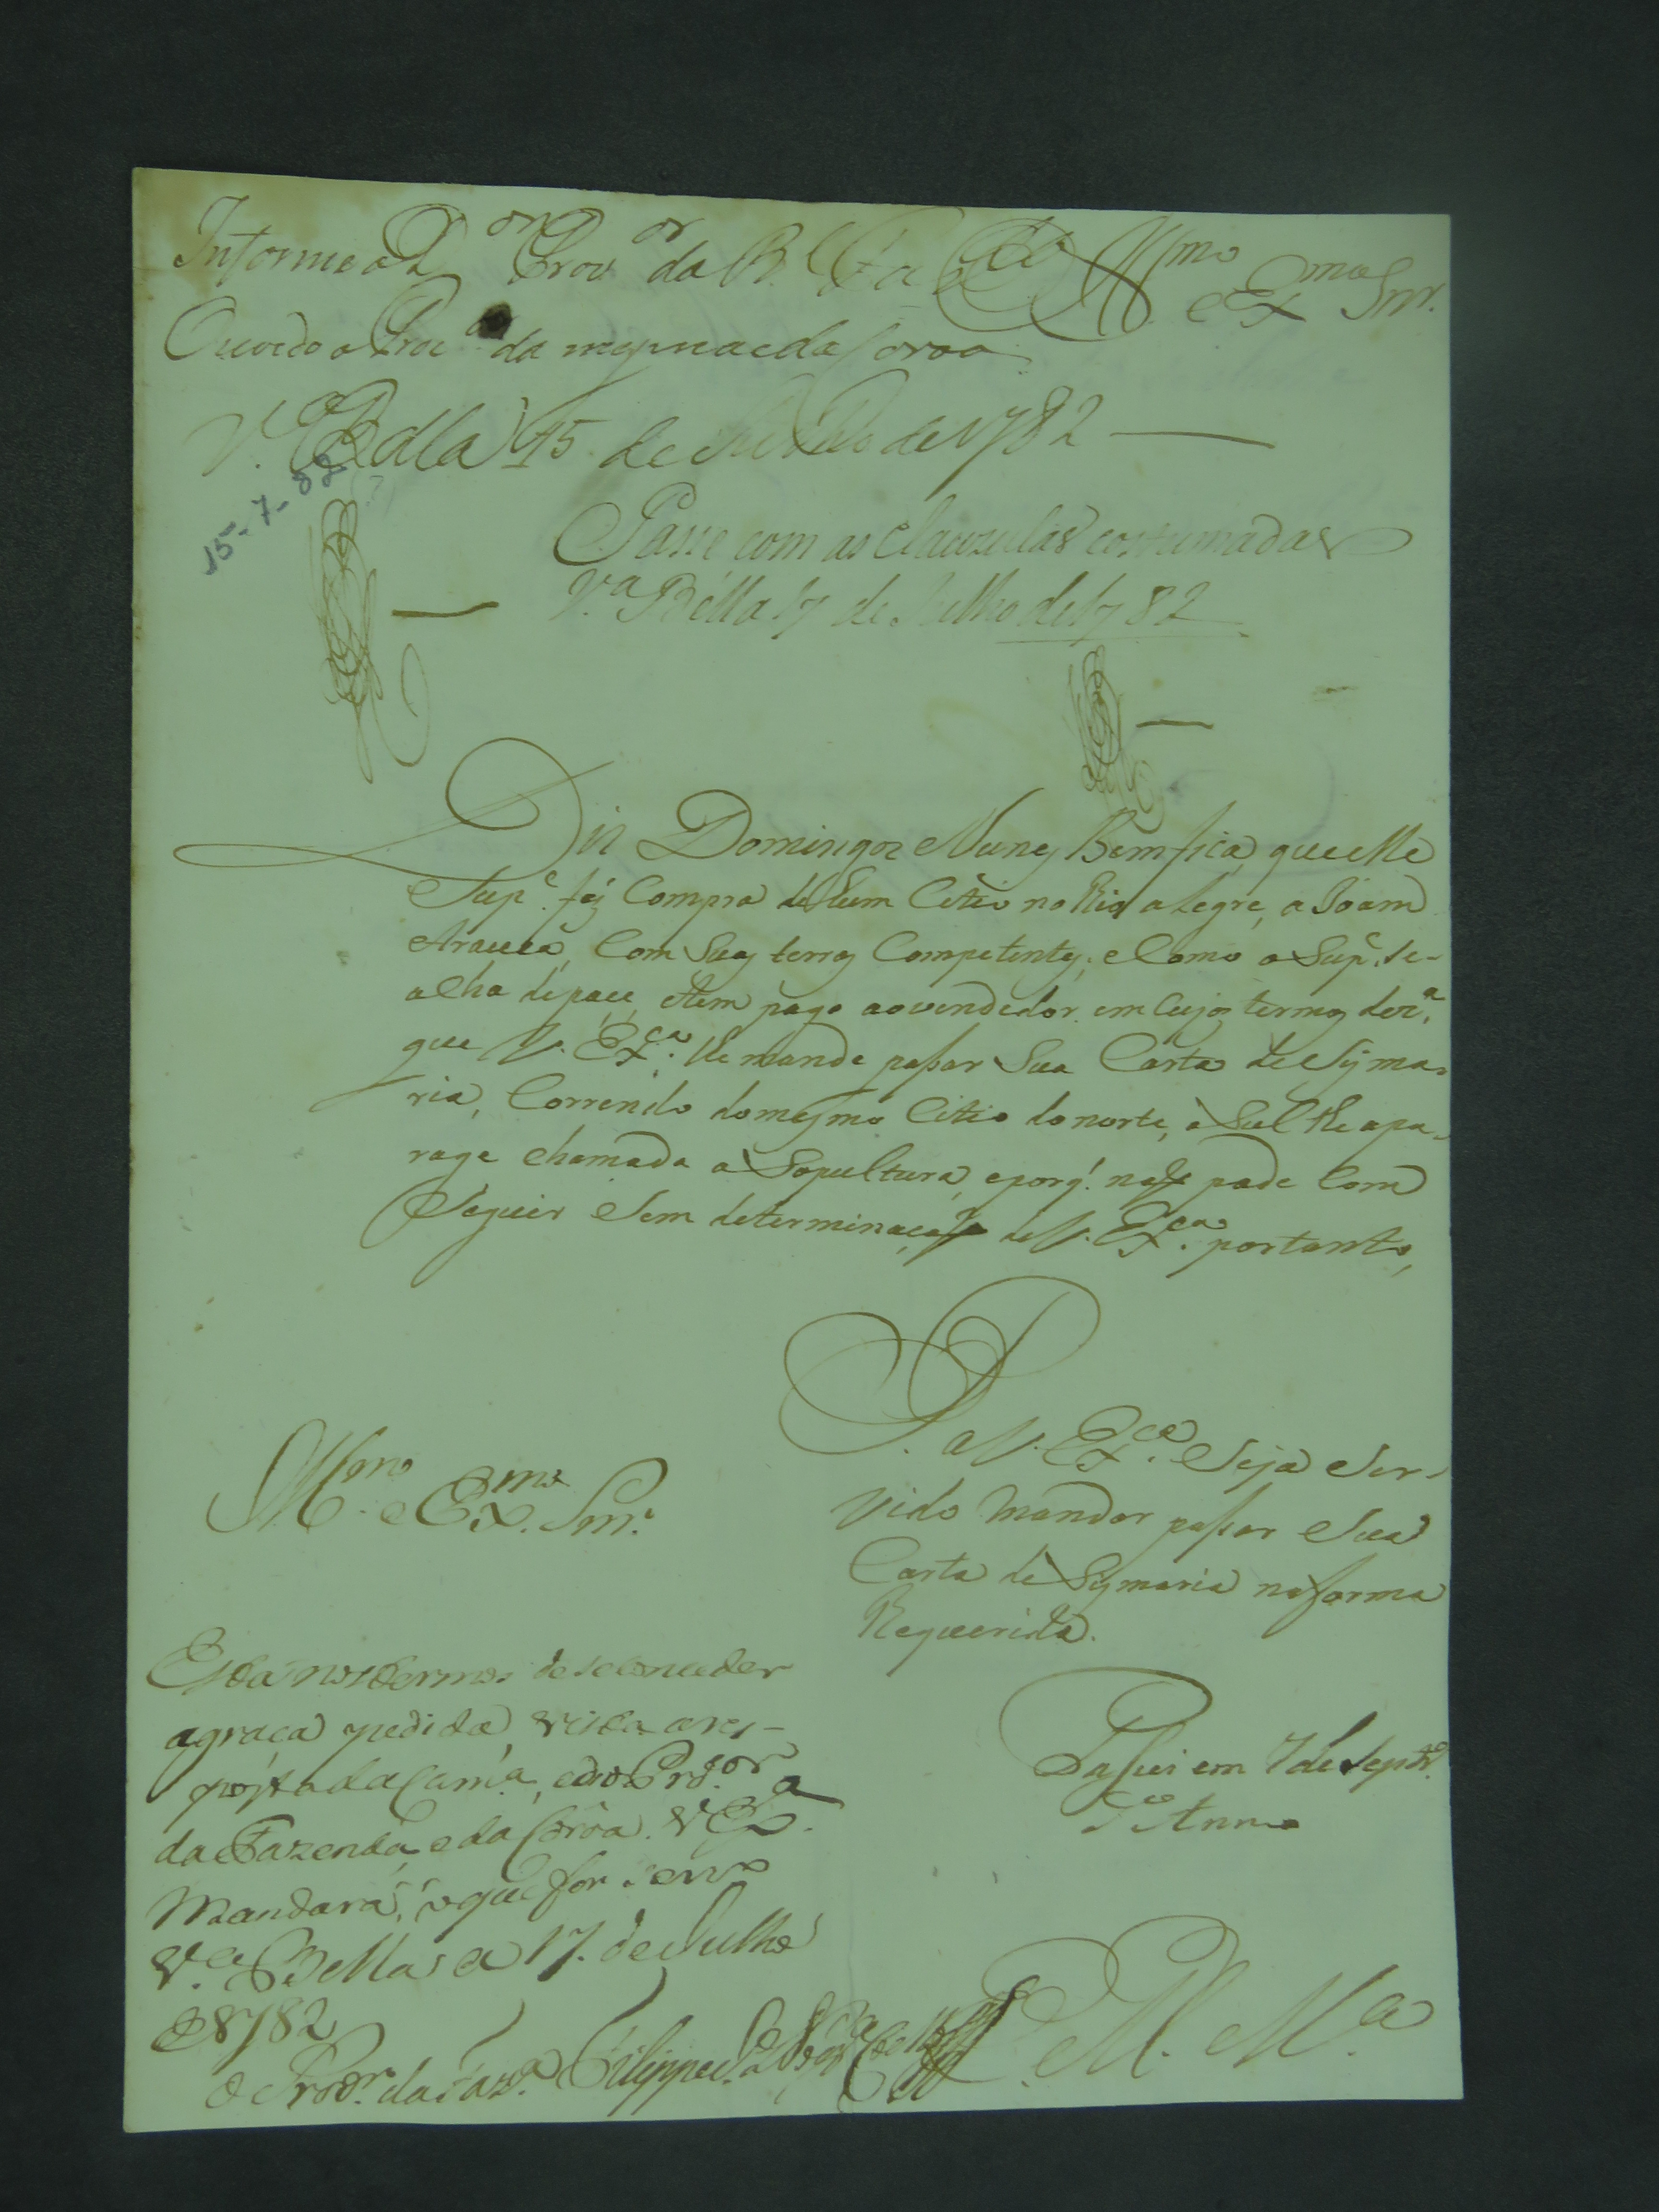 Informe o D.or Prov.or da R.l Faz.da
Ouvido o Proc.dor da mesma e da Coroa
Ill.mo e Ex.mo Snr.
V.a Bella 15 de Julho de 1782
15-7-82 (?)
Passe com as clauzulas costumadas
V.a Bella 17 de Julho de 1782
Diz Domingos Nunes Bemfica, que elle
Sup.e fez Compra de hum Citio no Rio alegre, a Joam
Arauca, Com Suas terras Competentes, e Como o Sup.e se-
acha de pace, e tem pago ao vendedor, em cujos termos
que V. Ex.ca lhe mande passar Sua Carta de Sesma-
ria, Correndo do mesmo Citio do norte, a Sul the apa-
rage chamada a Sopultura, e porq. não pode Com
Seguir Sem determinação de V. Ex.ca portanto,
P. a V. Ex.ca Seja Ser-
vido mandar passar Sua
Carta de Sesmaria na forma
Requerida.
Ill.mo e Ex.mo Snr.
Está nos termos de se conceder
a graça pedida, vista a res-
posta da Cam.a, e do Pro.or
da Fazenda, e da Coroa. V Ex.a
Mandará, o que for serv.o
V.a Bella a 17. de Julho
de 1782
O Prov.or da Faz.a Filippe
Passei em 7 de Septr.o
d.o Anno
E. R. M.a